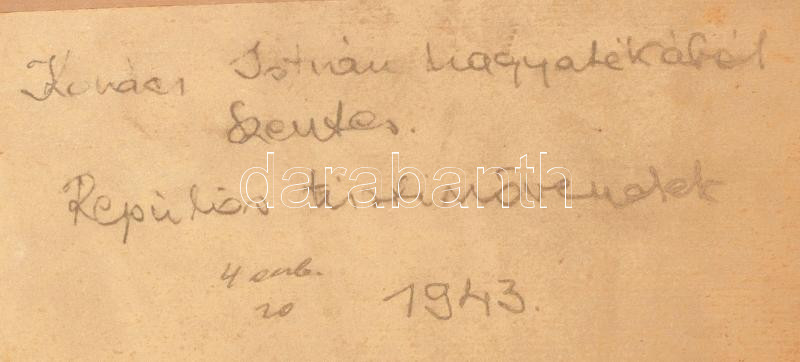 Kovács István hagyatékából
Szentes.
Repülős tisztnövendék
darabanth
4 db.
20
1943.